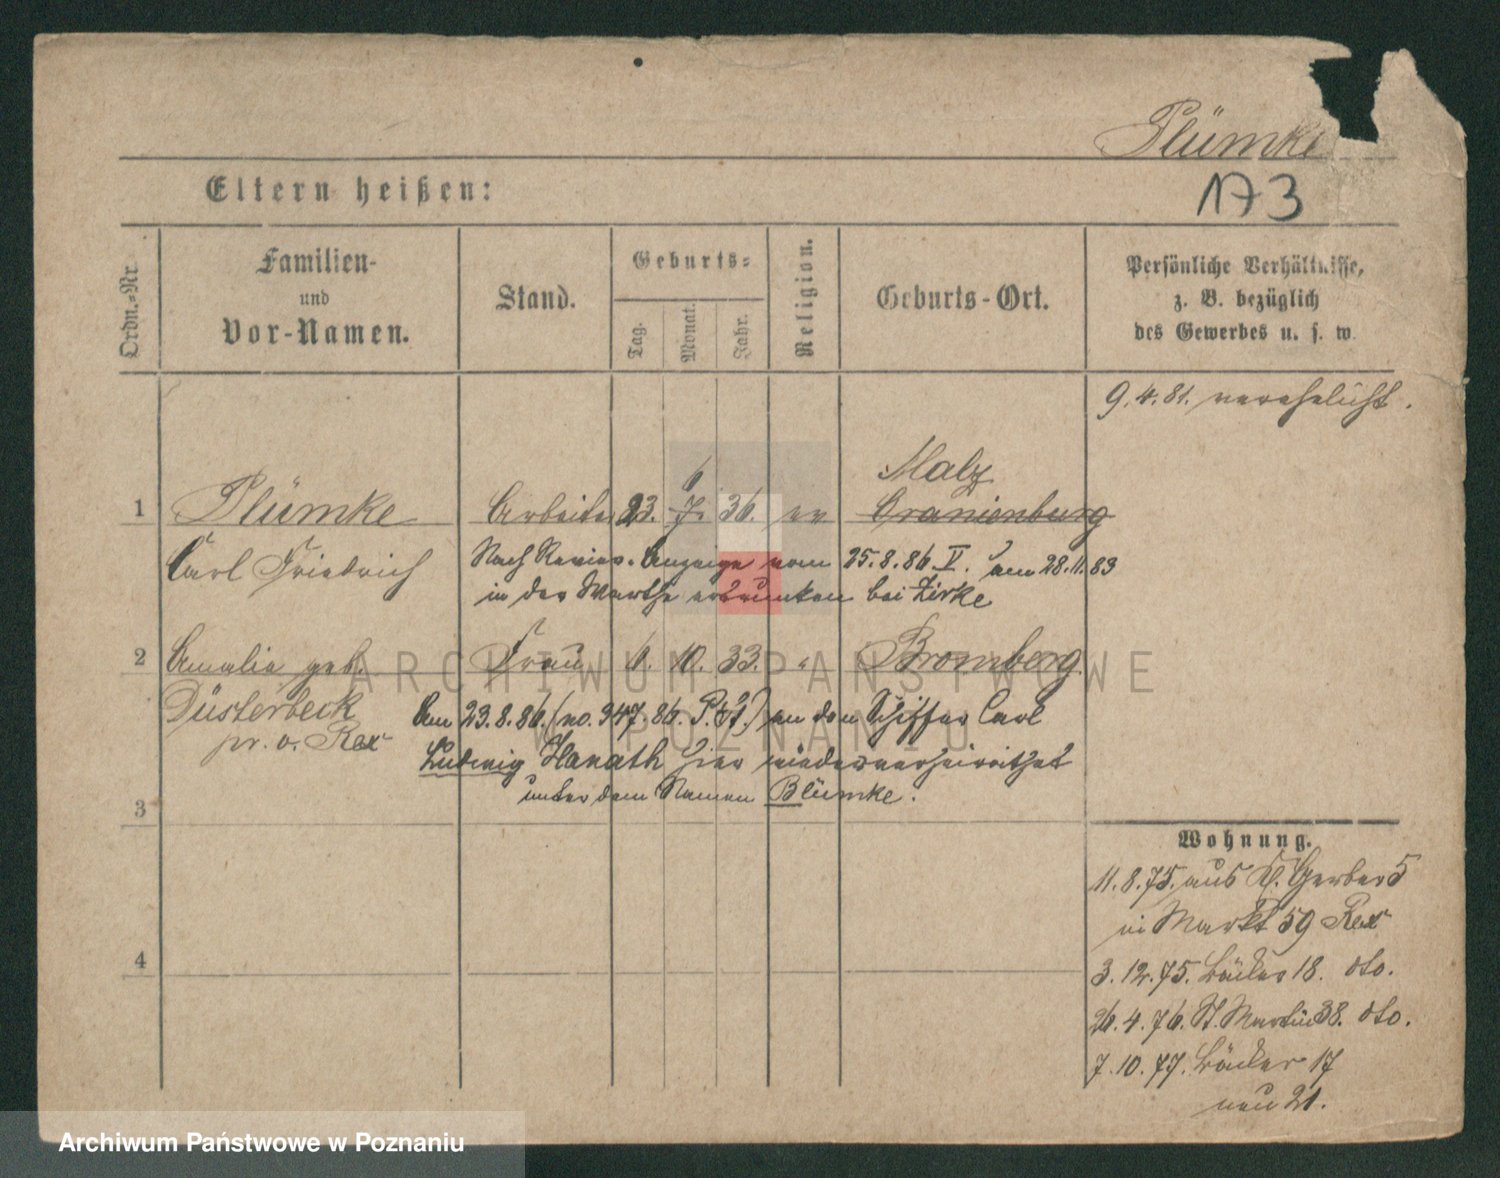 Plümke
Eltern heißen:
173
Ordn.-Nr.
Familien-
und
Vor-Namen.
Stand.
Geburts-
Tag.
Monat.
Jahr.
Religion.
Geburts-Ort.
Persönliche Verhältnisse,
z. B. bezüglich
des Gewerbes u. s. w.
9.4.81. verehelicht.
Malz
6
1 Plümke Arbeiter 23. 7. 36. ev Oranienburg
Carl Friedrich
Nach Revier-Anzeige vom 25.8.86 V. am 28.11.83
in der Warthe ertrunken bei Zirke
2 Amalie geb. Frau 6. 10. 33. " Bromberg
Düsterbeck
pr. v. Rex
Am 23.8.86. (no. 347.86. P. ) an den Schiffer Carl
Ludwig Hanath hier wiederverheirathet
unter dem Namen Blümke.
3
Wohnung.
11.8.75. aus Kl. Gerber 5
in Markt 59 Rex
3.12.75. Bäcker 18. dto.
26.4.76. St. Martin 38. dto.
7.10.77. Bäcker 17
neu 21.
4
ARCHIWUM PAŃSTWOWE
W POZNANIU
Archiwum Państwowe w Poznaniu